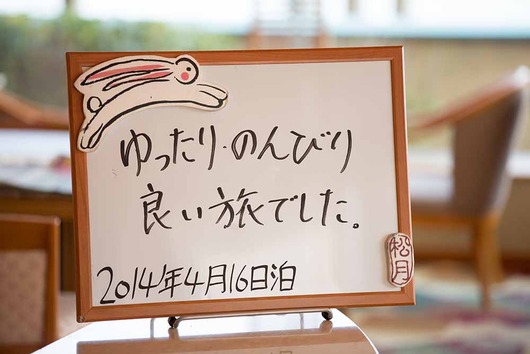 ゆったり・のんびり
良い旅でした。
2014年4月16日泊
松月